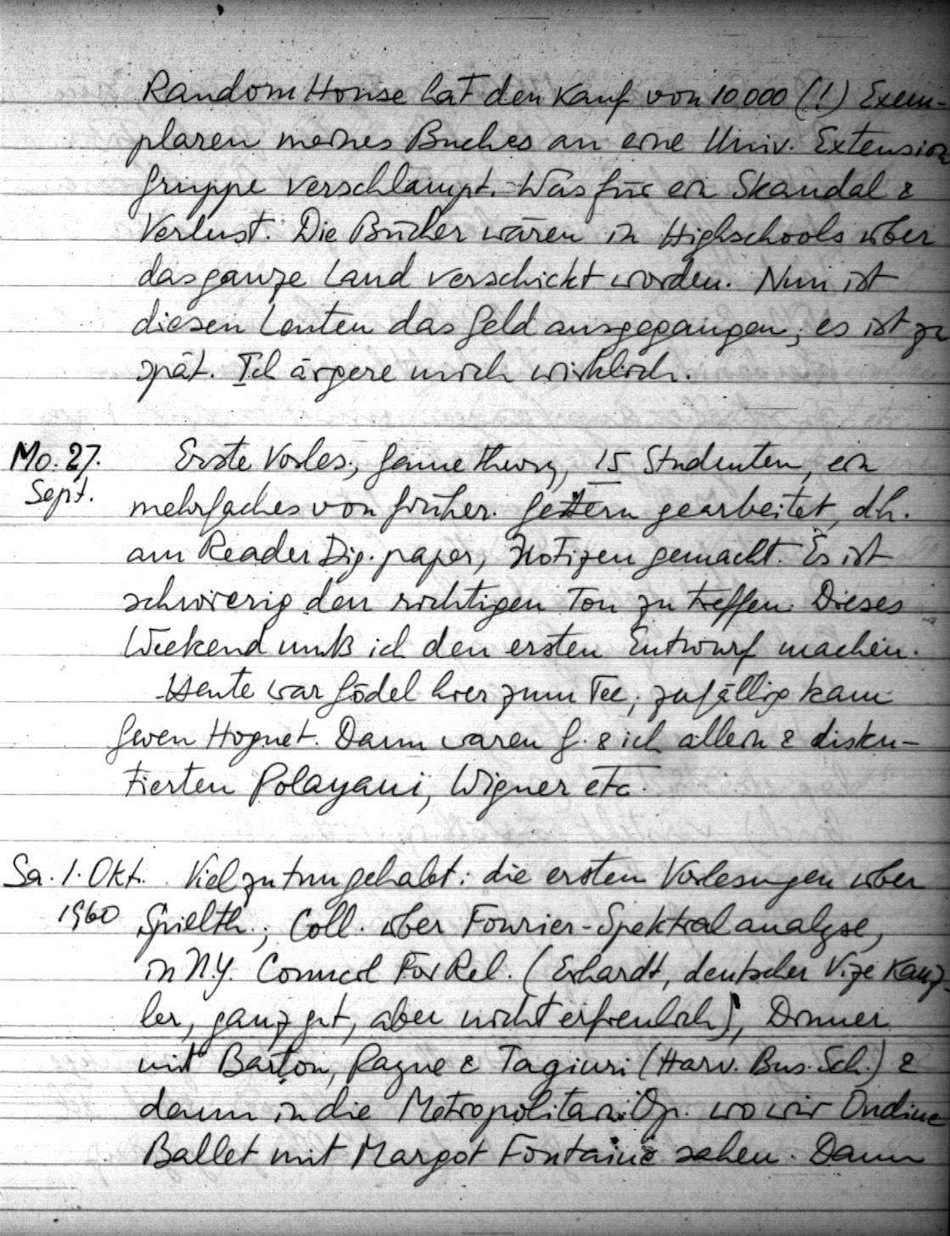 Random House hat den Kauf von 10 000 (!) Exem-
plaren meines Buches an eine Univ. Extension
gruppe verschlampt. Was für ein Skandal &
Verlust. Die Bücher wären in Highschools über
das ganze Land verschickt worden. Nun ist
diesen Leuten das Geld ausgegangen; es ist zu
spät. Ich ärgere mich wirklich.
Mo. 27. Sept. Erste Vorles., Game theory, 15 Studenten, ein
mehrfaches von früher. Gestern gearbeitet, dh.
am Reader Dig. paper, Notizen gemacht. Es ist
schwierig den richtigen Ton zu treffen. Dieses
Weekend muß ich den ersten Entwurf machen.
Heute war Gödel hier zum Tee; zufällig kam
Gwen Hognet. Dann waren G. & ich allein & disku-
tierten Polayani, Wigner etc.
Sa. 1. Okt. 1960 Viel zu tun gehabt: die ersten Vorlesungen über
Spielth.; Coll. über Fourier-Spektralanalyse,
in N.Y. Council For Rel. (Erhardt, deutscher Vize Kanz-
ler, ganz gut, aber nicht erfreulich), Dinner
mit Barton, & Tagiuri (Harv. Bus. Sch.) &
dann in die Metropolitan Op. wo wir Ondine
Ballet mit Margot Fontaine sahen. Dann